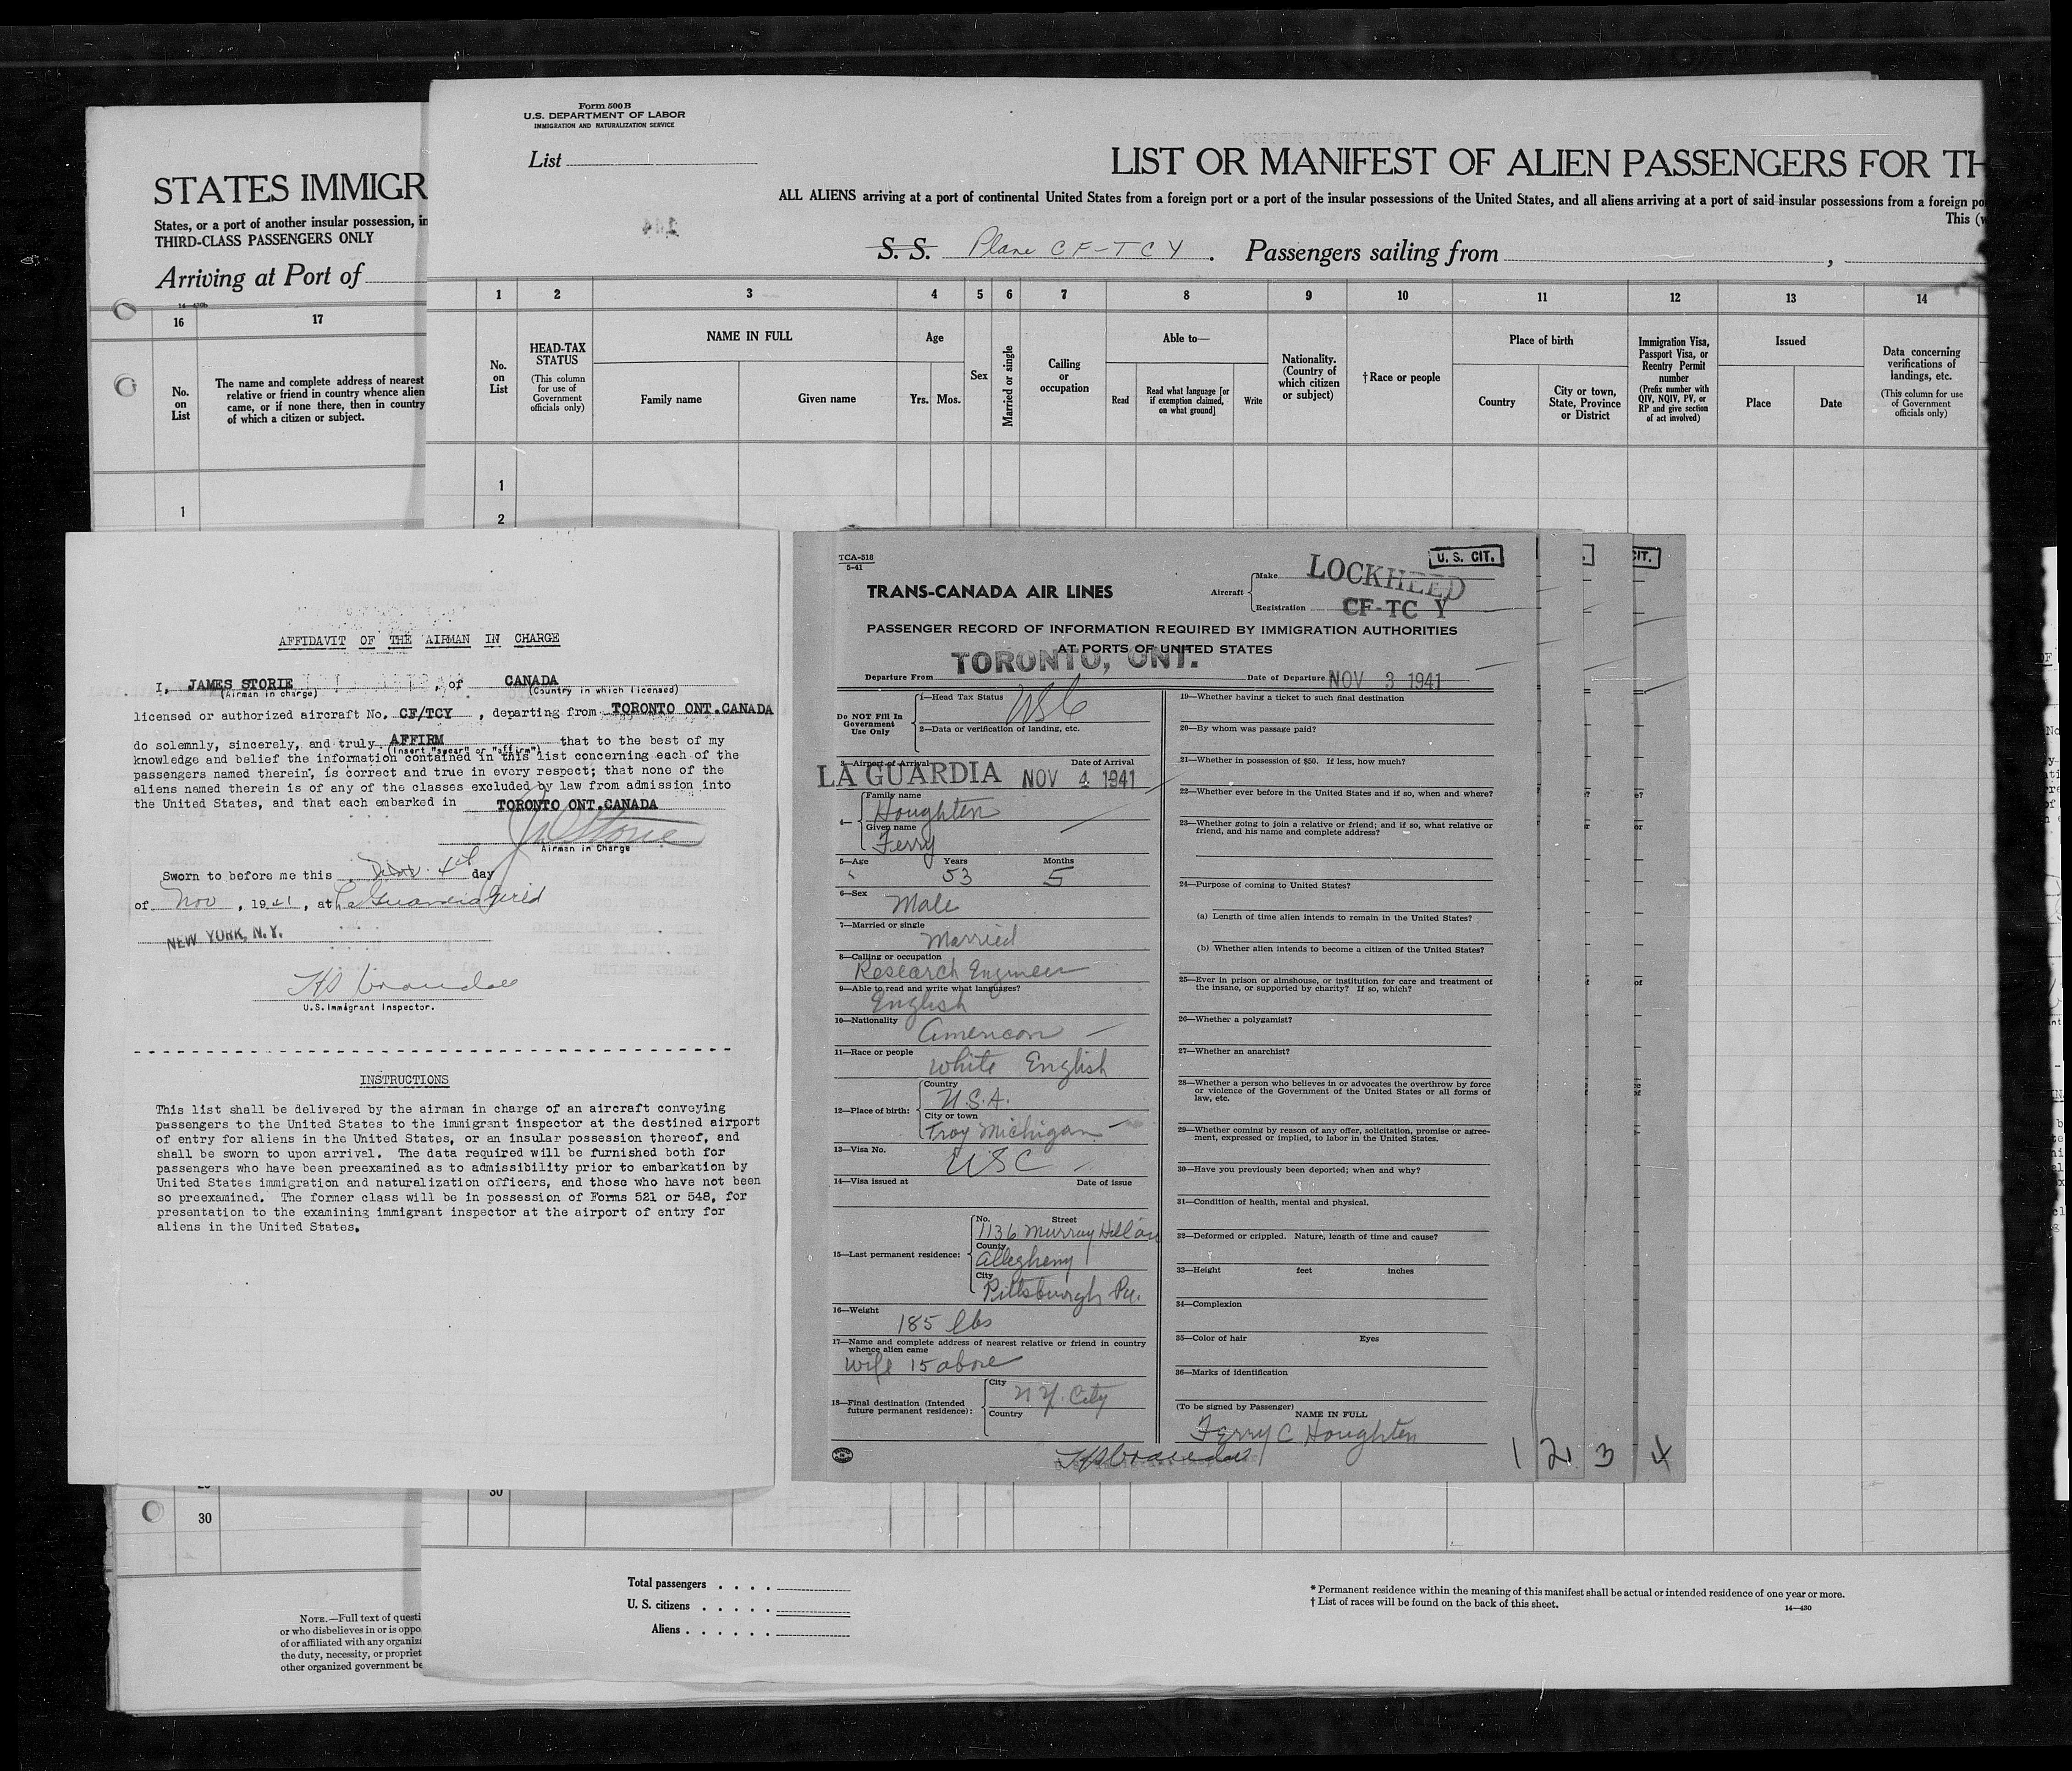 Form 500B
U.S. DEPARTMENT OF LABOR
IMMIGRATION AND NATURALIZATION SERVICE
List
LIST OR MANIFEST OF ALIEN PASSENGERS FOR TH
ALL ALIENS arriving at a port of continental United States from a foreign port or a port of the insular possessions of the United States, and all aliens arriving at a port of said insular possessions from a foreign po
This (w
S. S. Plane CF-TCY. Passengers sailing from ,
STATES IMMIGR
States, or a port of another insular possession, in
THIRD-CLASS PASSENGERS ONLY
Arriving at Port of
16 17
No. on List
The name and complete address of nearest
relative or friend in country whence alien
came, or if none there, then in country
of which a citizen or subject.
1
1 2 3 4 5 6 7 8 9 10 11 12 13 14
No. on List
HEAD-TAX STATUS
(This column for use of Government officials only)
NAME IN FULL
Family name Given name
Age
Yrs. Mos.
Sex
Married or single
Calling or occupation
Able to—
Read
Read what language [or if exemption claimed, on what ground]
Write
Nationality. (Country of which citizen or subject)
†Race or people
Place of birth
Country
City or town, State, Province or District
Immigration Visa, Passport Visa, or Reentry Permit number
(Prefix number with QIV, NQIV, PV, or RP and give section of act involved)
Issued
Place Date
Data concerning verifications of landings, etc.
(This column for use of Government officials only)
1
2
AFFIDAVIT OF THE AIRMAN IN CHARGE
I, JAMES STORIE , of CANADA
(Airman in charge) (Country in which licensed)
licensed or authorized aircraft No. CF/TCY , departing from TORONTO ONT.CANADA
do solemnly, sincerely, and truly AFFIRM that to the best of my
(Insert "swear" or "affirm")
knowledge and belief the information contained in this list concerning each of the
passengers named therein, is correct and true in every respect; that none of the
aliens named therein is of any of the classes excluded by law from admission into
the United States, and that each embarked in TORONTO ONT.CANADA
Airman in Charge
Sworn to before me this Nov. 4th day
of Nov , 1941, at La Guardia Field
NEW YORK, N.Y.
U.S.Immigrant Inspector.
INSTRUCTIONS
This list shall be delivered by the airman in charge of an aircraft conveying
passengers to the United States to the immigrant inspector at the destined airport
of entry for aliens in the United States, or an insular possession thereof, and
shall be sworn to upon arrival. The data required will be furnished both for
passengers who have been preexamined as to admissibility prior to embarkation by
United States immigration and naturalization officers, and those who have not been
so preexamined. The former class will be in possession of Forms 521 or 548, for
presentation to the examining immigrant inspector at the airport of entry for
aliens in the United States.
TCA-518
5-41
U. S. CIT.
CIT.
TRANS-CANADA AIR LINES
Aircraft
Make LOCKHEED
Registration CF-TC Y
PASSENGER RECORD OF INFORMATION REQUIRED BY IMMIGRATION AUTHORITIES
AT PORTS OF UNITED STATES
Departure From TORONTO, ONT. Date of Departure NOV 3 1941
Do NOT Fill In Government Use Only
1—Head Tax Status USC
2—Data or verification of landing, etc.
3—Airport of Arrival Date of Arrival
LA GUARDIA NOV 4 1941
4—
Family name
Houghten
Given name
Ferry
5—Age Years Months
53 5
6—Sex
Male
7—Married or single
Married
8—Calling or occupation
Research Engineer
9—Able to read and write what languages?
English
10—Nationality
American
11—Race or people
White English
12—Place of birth:
Country
U.S.A.
City or town
Troy Michigan
13—Visa No.
USC
14—Visa issued at Date of issue
15—Last permanent residence:
No. Street
1136 Murray Hill av
County
Allegheny
City
Pittsburgh Pa.
16—Weight
185 lbs
17—Name and complete address of nearest relative or friend in country
whence alien came
Wife 15 above
18—Final destination (Intended
future permanent residence):
City
N.Y. City
Country
19—Whether having a ticket to such final destination
20—By whom was passage paid?
21—Whether in possession of $50. If less, how much?
22—Whether ever before in the United States and if so, when and where?
23—Whether going to join a relative or friend; and if so, what relative or
friend, and his name and complete address?
24—Purpose of coming to United States?
(a) Length of time alien intends to remain in the United States?
(b) Whether alien intends to become a citizen of the United States?
25—Ever in prison or almshouse, or institution for care and treatment of
the insane, or supported by charity? If so, which?
26—Whether a polygamist?
27—Whether an anarchist?
28—Whether a person who believes in or advocates the overthrow by force
or violence of the Government of the United States or all forms of
law, etc.
29—Whether coming by reason of any offer, solicitation, promise or agree-
ment, expressed or implied, to labor in the United States.
30—Have you previously been deported; when and why?
31—Condition of health, mental and physical.
32—Deformed or crippled. Nature, length of time and cause?
33—Height feet inches
34—Complexion
35—Color of hair Eyes
36—Marks of identification
(To be signed by Passenger)
NAME IN FULL
Ferry C Houghten
1 2 3 4
30
30
Total passengers . . . .
U. S. citizens . . . . .
Aliens . . . . . .
* Permanent residence within the meaning of this manifest shall be actual or intended residence of one year or more.
† List of races will be found on the back of this sheet.
14—430
NOTE.—Full text of questi
or who disbelieves in or is oppo
of or affiliated with any organiza
the duty, necessity, or propriet
other organized government be